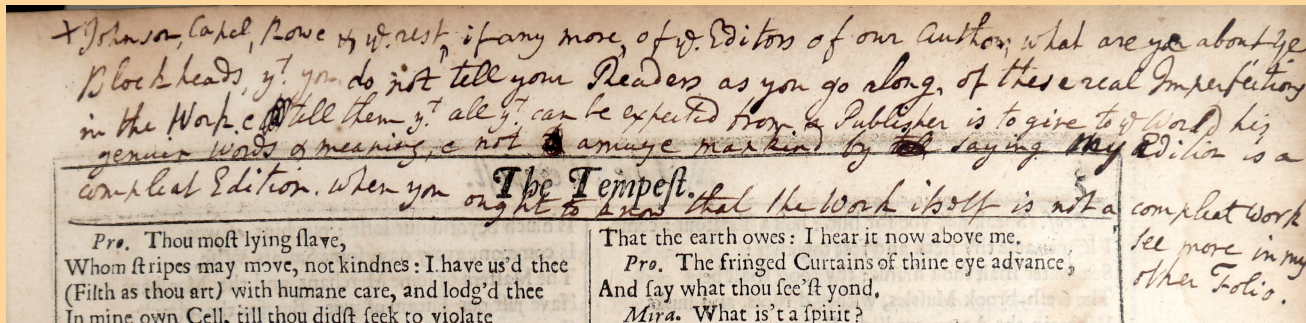 + Johnson, Capel, Rowe & yͤ. rest, if any more, of yͤ. Editors of our Author, what are you about ye
Blockheads, yͭ. you do not tell your Readers as you go along, of these real Imperfections
in the Work. & tell them yͭ. all yͭ. can be expected from a Publisher is to give to yͤ World his
genuin words & meaning, & not amuze mankind by saying My Edition is a
compleat Edition. when you ought to know that the Work itself is not a compleat work
see more in my
other Folio.
The Tempeſt.
Pro. Thou moſt lying ſlave,
Whom ſtripes may move, not kindnes : I have us'd thee
(Filth as thou art) with humane care, and lodg'd thee
In mine own Cell, till thou didſt ſeek to violate
That the earth owes : I hear it now above me.
Pro. The fringed Curtains of thine eye advance,
And ſay what thou ſee'ſt yond.
Mira. What is't a ſpirit ?